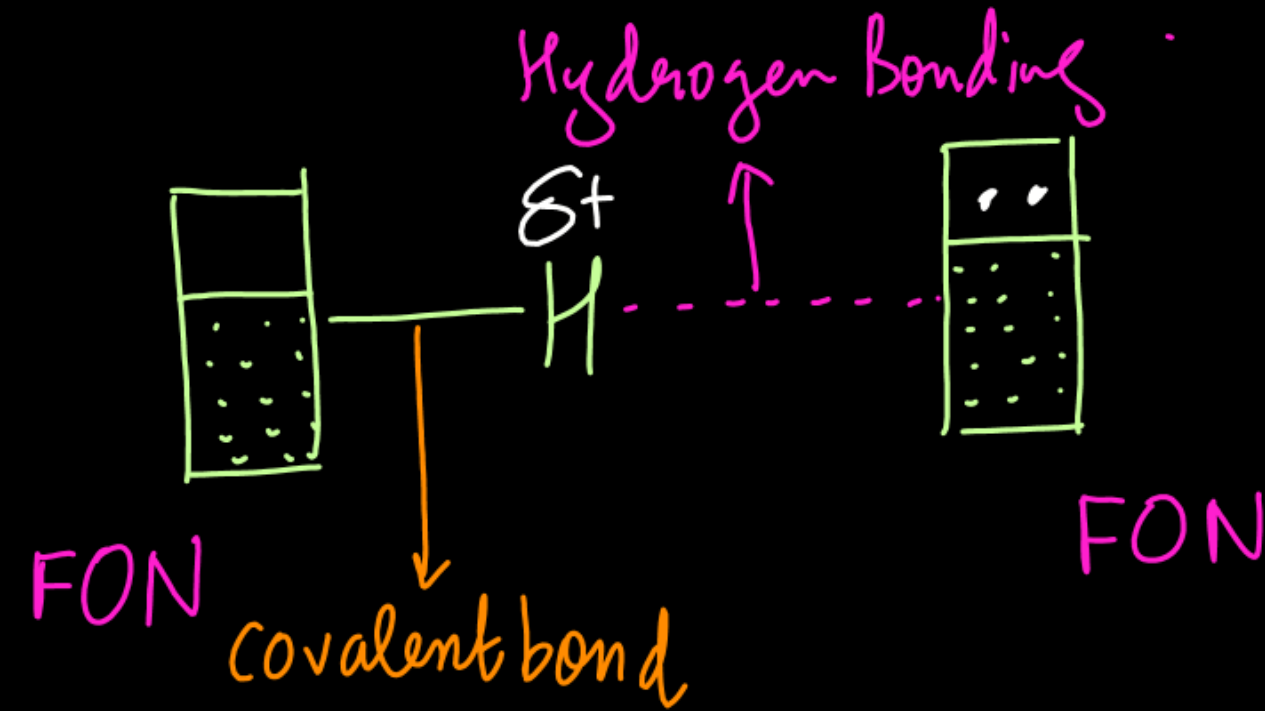 Hydrogen Bonding
δ+
H
FON
FON
covalent bond